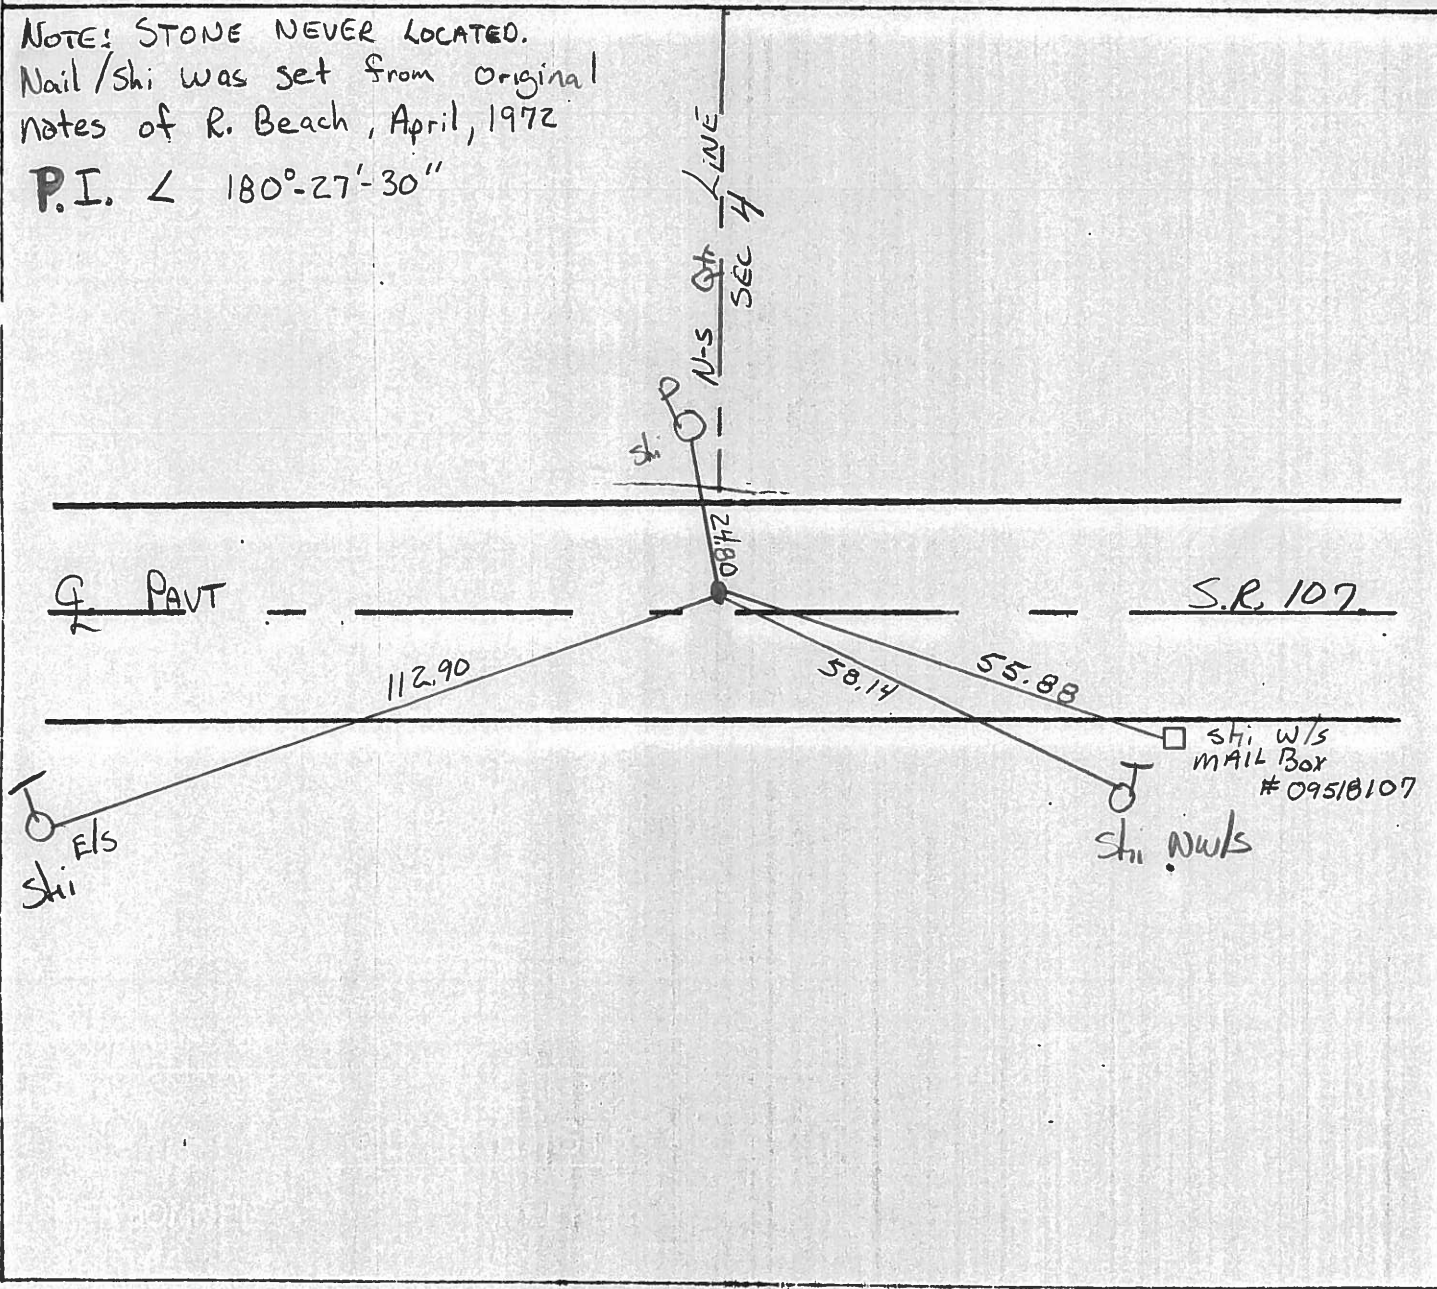 NOTE: STONE NEVER LOCATED.
Nail/Shi was set from original
notes of R. Beach, April, 1972
P.I. ∠ 180°-27'-30"
N-S Qtr LINE
SEC 4
P
Shi
24.80
℄ PAVT
S.R. 107
112.90
58.14
55.88
Shi W/S
MAIL Box
# 09518107
T
E/S
Shi
T
Shi NW/S